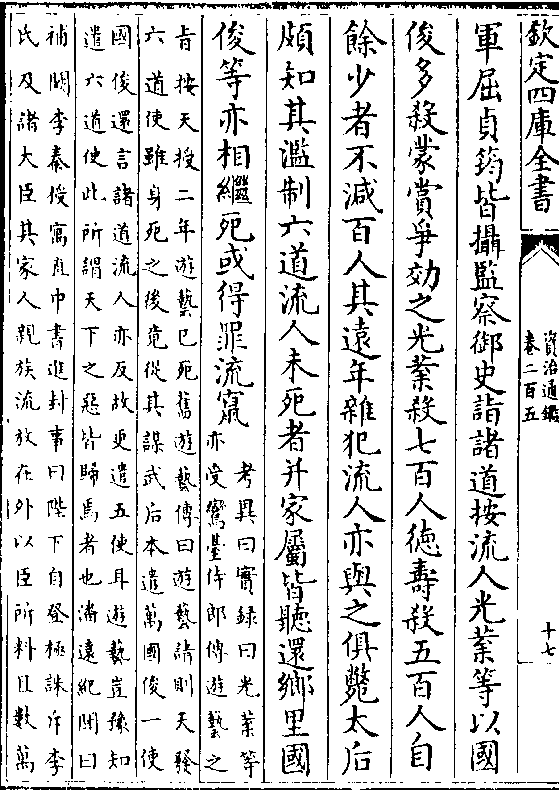 欽定四庫全書
資治通鑑
卷二百五
十七
軍屈貞筠皆攝監察御史詣諸道按流人光業等以國
俊多殺蒙賞爭効之光業殺七百人德壽殺五百人自
餘少者不減百人其遠年雜犯流人亦與之俱斃太后
頗知其濫制六道流人未死者并家屬皆聽還鄉里國
俊等亦相繼死或得罪流竄
考異曰實録曰光業等
亦受鸞臺侍郎傅遊藝之
旨按天授二年遊藝已死舊遊藝傳曰遊藝請則天發
六道使雖身死之後竟從其謀武后本遣萬國俊一使
國俊還言諸道流人亦反故更遣五使耳遊藝豈豫知
遣六道使此所謂天下之惡皆歸焉者也潘遠紀聞曰
補闕李秦授寓直中書進封事曰陛下自登極誅斥李
氏及諸大臣其家人親族流放在外以臣所料且數萬